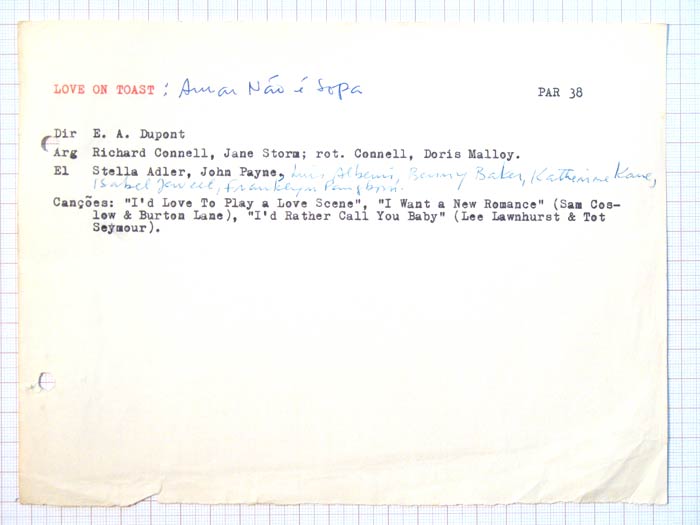 LOVE ON TOAST : Amar Não é Sopa PAR 38
Dir E. A. Dupont
Arg Richard Connell, Jane Storm; rot. Connell, Doris Malloy.
El Stella Adler, John Payne, Luis Alberni, Benny Baker, Katherine Kane,
Isabel Jewell, Franklyn Pangborn.
Canções: "I'd Love To Play a Love Scene", "I Want a New Romance" (Sam Cos-
low & Burton Lane), "I'd Rather Call You Baby" (Lee Lawnhurst & Tot
Seymour).